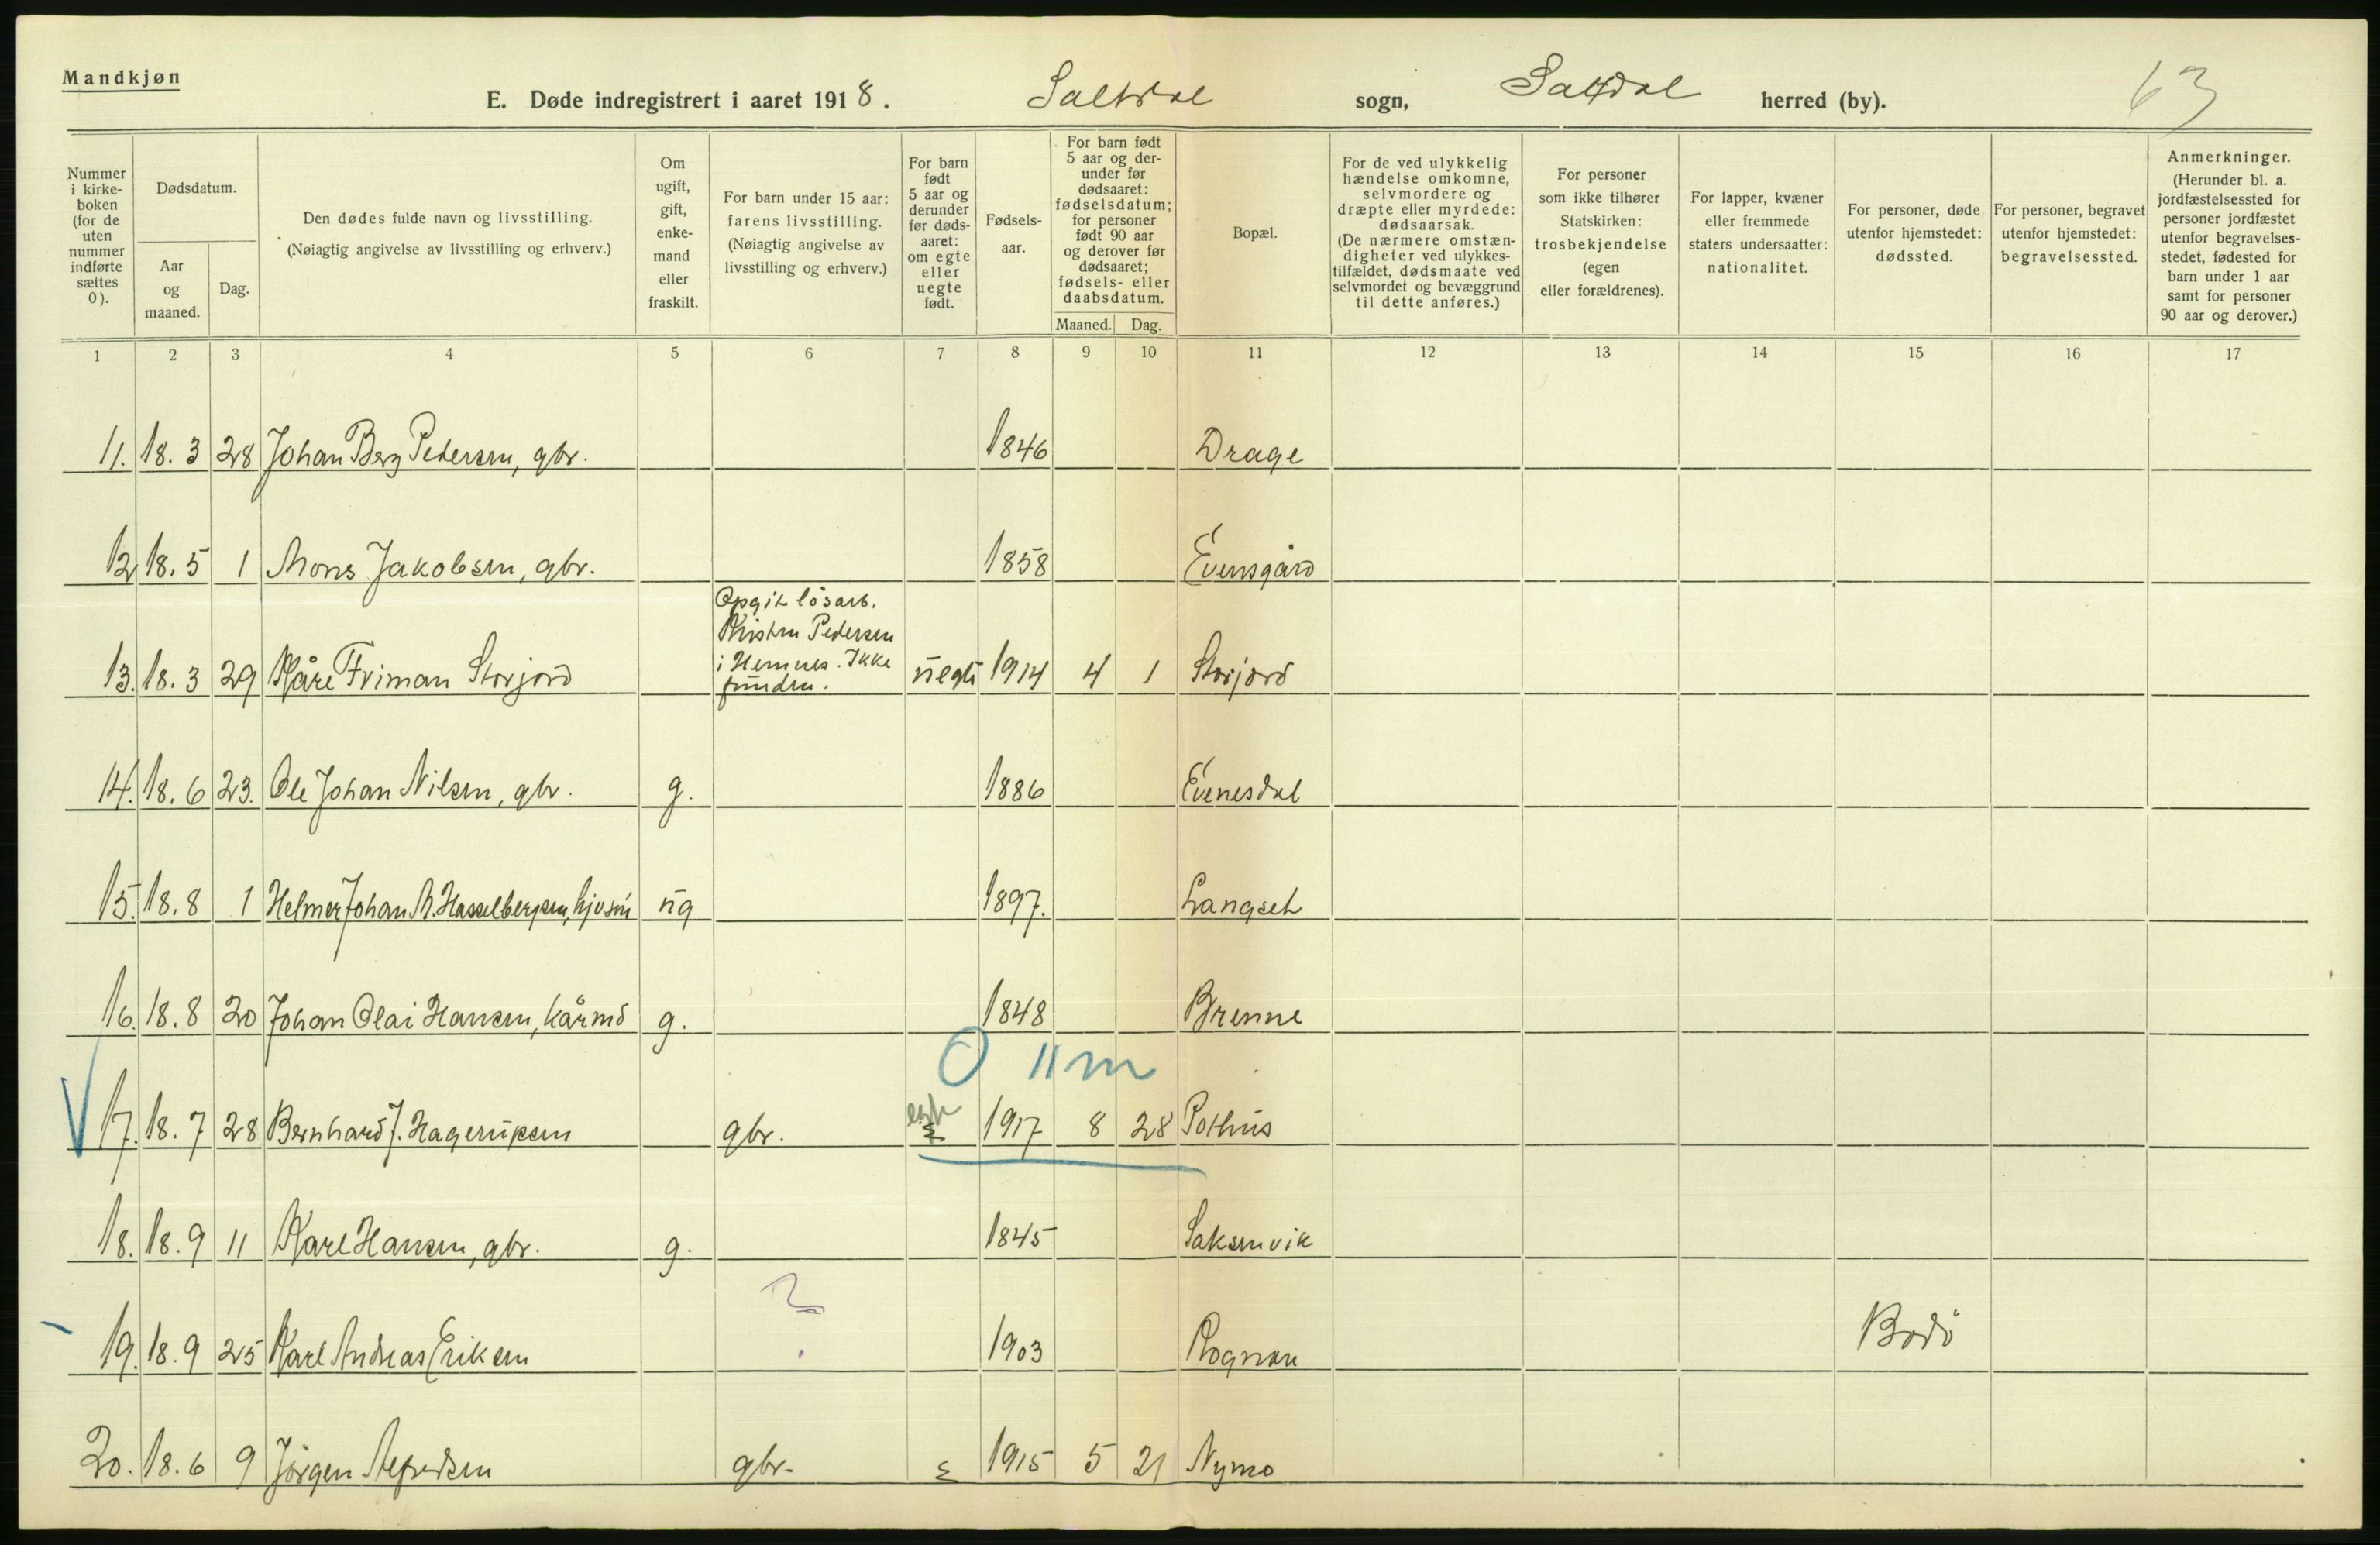 Mandkjøn
E. Døde indregistrert i aaret 1918. Saltdal sogn, Saltdal herred (by). 63
Nummer i kirke-boken (for de uten nummer indførte sættes 0).
Dødsdatum.
Aar og maaned.
Dag.
Den dødes fulde navn og livsstilling.
(Nøiagtig angivelse av livsstilling og erhverv.)
Om ugift, gift, enke-mand eller fraskilt.
For barn under 15 aar: farens livsstilling.
(Nøiagtig angivelse av livsstilling og erhverv.)
For barn født 5 aar og derunder før døds-aaret: om egte eller uegte født.
Fødsels-aar.
For barn født 5 aar og der-under før dødsaaret: fødselsdatum; for personer født 90 aar og derover før dødsaaret; fødsels- eller daabsdatum.
Maaned. Dag.
Bopæl.
For de ved ulykkelig hændelse omkomne, selvmordere og dræpte eller myrdede: dødsaarsak.
(De nærmere omstæn-digheter ved ulykkes-tilfældet, dødsmaate ved selvmordet og bevæggrund til dette anføres.)
For personer som ikke tilhører Statskirken: trosbekjendelse (egen eller forældrenes).
For lapper, kvæner eller fremmede staters undersaatter: nationalitet.
For personer, døde utenfor hjemstedet: dødssted.
For personer, begravet utenfor hjemstedet: begravelsessted.
Anmerkninger.
(Herunder bl. a. jordfæstelsessted for personer jordfæstet utenfor begravelses-stedet, fødested for barn under 1 aar samt for personer 90 aar og derover.)
1 2 3 4 5 6 7 8 9 10 11 12 13 14 15 16 17
11. 18.3 28 Johan Berg Pedersen, gbr. 1846 Drage
12 18.5 1 Mons Jakobsen, gbr. 1858 Evensgård
Opgit løsarb.
Kristen Pedersen
i Hemnes. Ikke
funden.
13. 18.3 29 Kåre Friman Storjord uegte 1914 4 1 Storjord
14. 18.6 23. Ole Johan Nilsen, gbr. g. 1886 Evenesdal
15. 18.8 1 Helmer Johan A. Hasselbergsen, ug 1897. Langset
16. 18.8 20 Johan Olai Hansen, kårmd g. 1848 Brenne
0 11 m
17. 18.7 28 Bernhard J. Hagerupsen gbr. egte 1917 8 28 Pothus
18. 18.9 11 Karl Hansen, gbr. g. 1845 Saksenvik
?
19. 18.9 25 Karl Andreas Eriksen 1903 Rognan Bodö
20. 18.6 9 Jörgen Alfredsen gbr. E 1915 5 21 Nymo